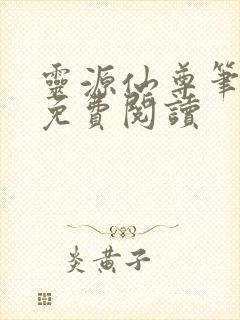 靈源仙尊筆
免費閱讀
炎黃子